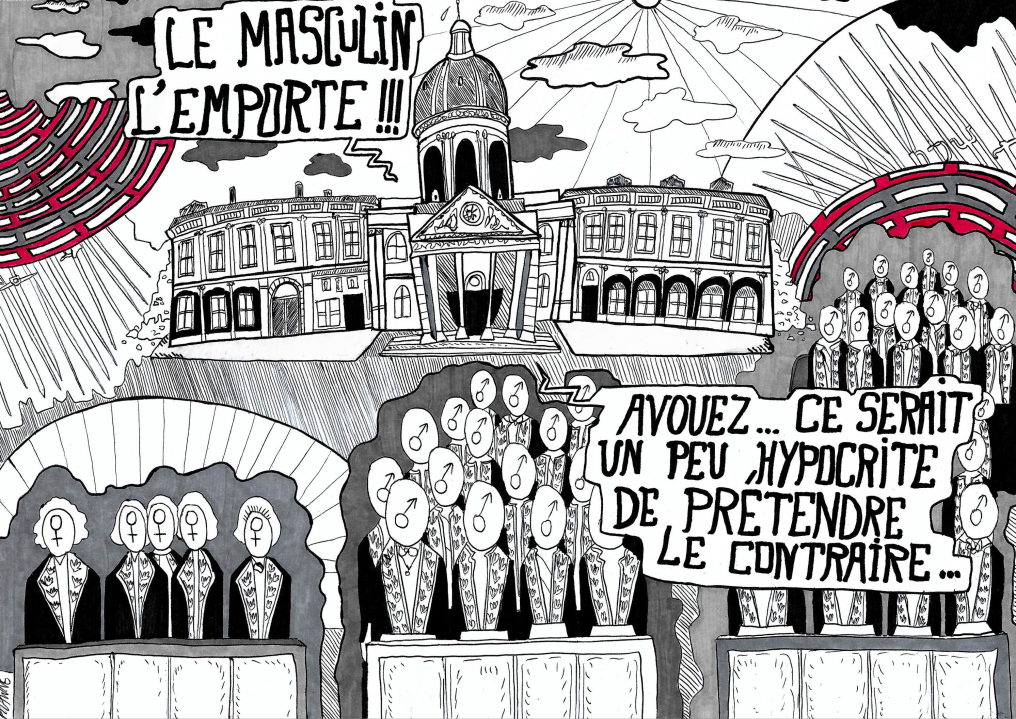 LE MASCULIN
L'EMPORTE !!!
AVOUEZ... CE SERAIT
UN PEU HYPOCRITE
DE PRETENDRE
LE CONTRAIRE...